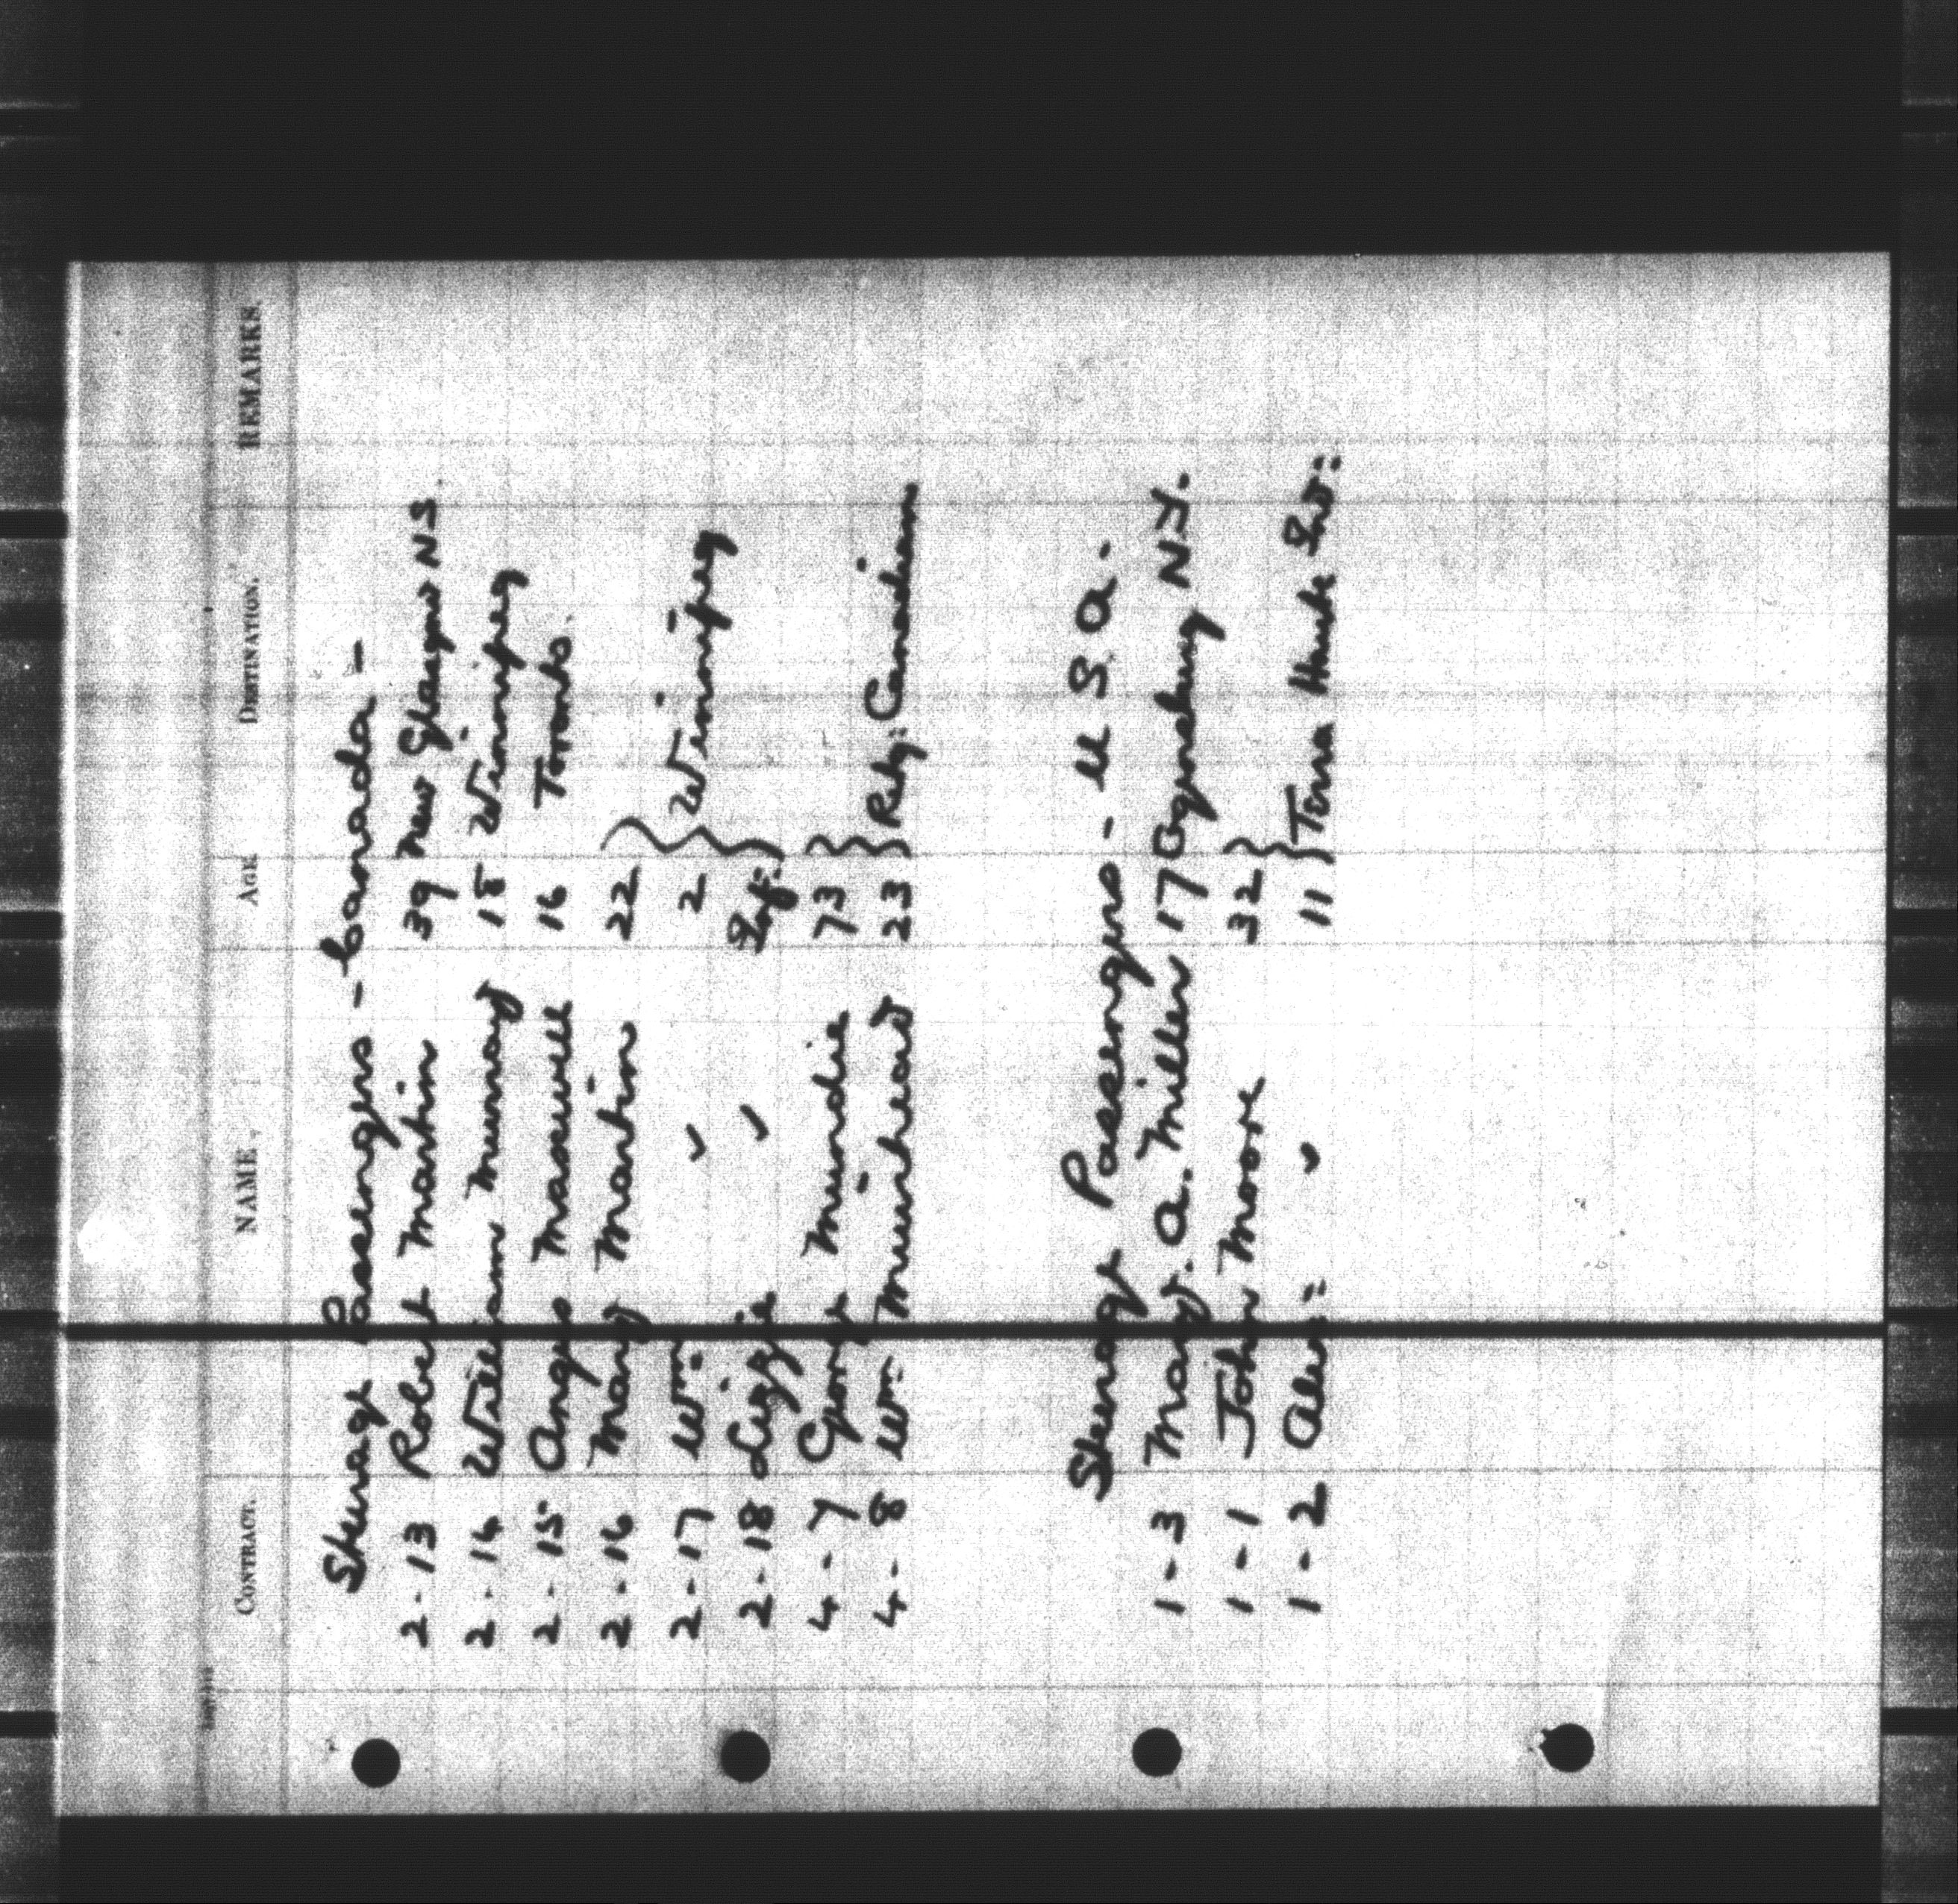 CONTRACT. NAME. AGE DESTINATION. REMARKS
Steerage Passengers - Canada -
2-13 Robert Martin 39 New Glasgow N S.
2-14 William Murray 18 Winnipeg
2-15 Angus Maxwell 16 Toronto.
2-16 Mary Martin 22
2-17 Wm: ✓ 2 Winnipeg
2-18 Lizzie ✓ Inf:
4-7 George Mundie 73
4-8 Wm: Muirhead 23 Retg: Canadian
Steerage Passengers - U S. A.
1-3 Mary. A. Miller 17 Ogensburg N Y.
1-1 John Moore 32
1-2 Alex: ✓ 11 Terra Haute Ind: